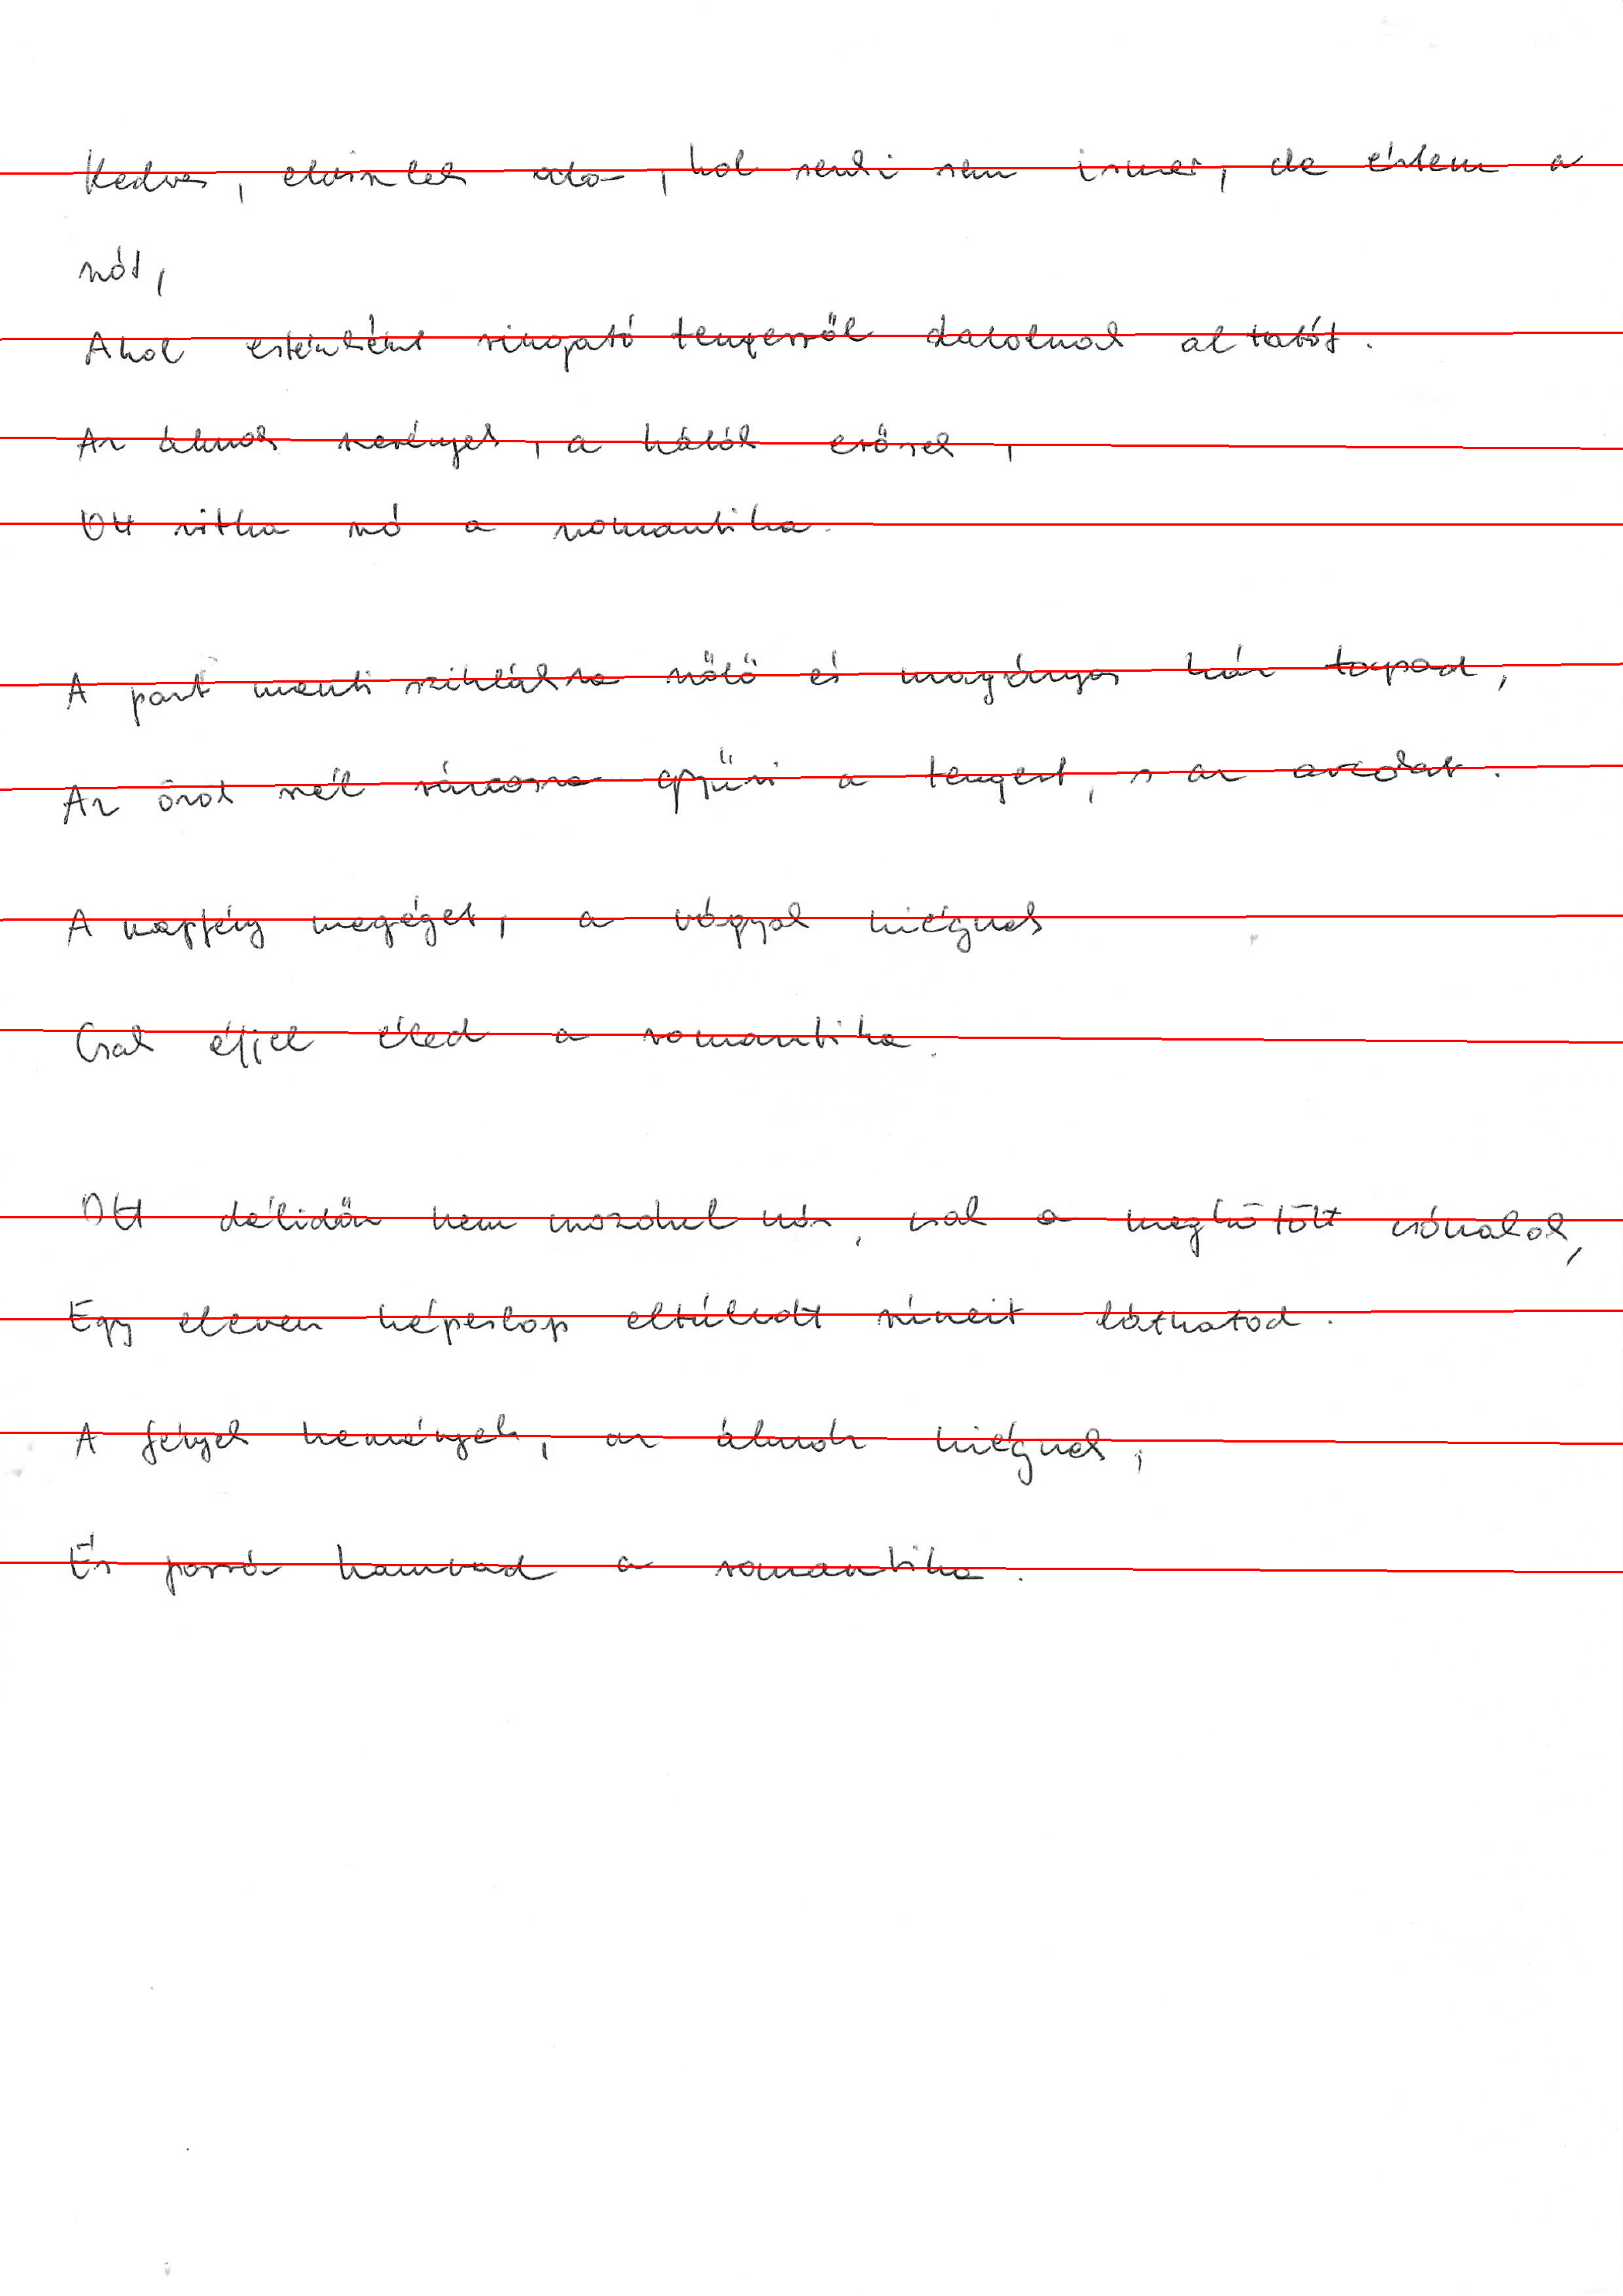 Kedves, elvisznlek oda, hol senki sem ismer, de értem a
szót,
Ahol esténként ringató tengerről dalolnak altatót.
Az álmok szerények, a hálók erősek,
Ott ritka szó a romantika.
A part menti sziklákra szőlő és magányos ház tapad,
Az örök szél ráncosra gyűri a tengert, s az arcodat.
A napfény megéget, a vágyak kiégnek
Csak éjjel éled a romantika.
Ott délidőn nem mozdul más, csak a megkötött csónakok,
Egy eleven képeslap eltúlzott színeit láthatod.
A fények kemények, az álmok kiégnek,
És porrá hamvad a romantika.